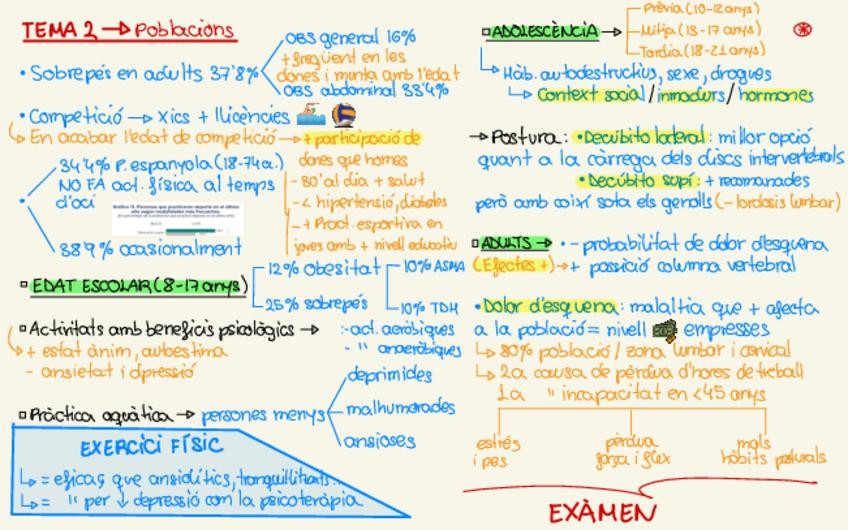 TEMA 2 → Poblacions
• Sobrepés en adults 37'8%
OBS general 16%
+ freqüent en les
dones i munta amb l'edat
OBS abdominal 33'4%
• Competició → Xics + llicències
↳ En acabar l'edat de competició → + participació de
dones que homes
- 80' al dia + salut
- < hipertensió, diabetes
- + Pract. esportiva en
joves amb + nivell educatiu
• 34'4% P. espanyola (18-74a.)
NO FA act. física al temps
d'oci
• 38'9% ocasionalment
EDAT ESCOLAR (8-17 anys)
12% obesitat
25% sobrepés
10% ASMA
10% TDH
Activitats amb beneficis psicològics →
:-act. aeròbiques
- " anaeròbiques
↳ + estat ànim, autoestima
- ansietat i dpressió
Pràctica aquàtica → persones menys
deprimides
malhumorades
ansioses
EXERCICI FÍSIC
↳ = eficaç que ansiolítics, tranquil·litzats...
↳ = " per ↓ depressió com la psicoteràpia
ADOLESCÈNCIA →
Prèvia (10-12 anys)
Mitja (13-17 anys)
Tardia (18-21 anys)
↳ Hàb. autodestructius, sexe, drogues
↳ Context social / inmadurs / hormones
→ Postura: • Decúbito lateral: millor opció
quant a la càrrega dels discs intervertebrals
• Decúbito supí: + recomanades
però amb coixí sota els genolls (- lordosis lumbar)
ADULTS → • - probabilitat de dolor d'esquena
(Efectes +) → + possició columna vertebral
• Dolor d'esquena: malaltia que + afecta
a la població = nivell empresses
↳ 80% població / zona lumbar i cervical
↳ 2a causa de pèrdua d'hores de treball
1a " incapacitat en <45 anys
estrés
i pes
pèrdua
força i flex
mals
hàbits posturals
EXÀMEN